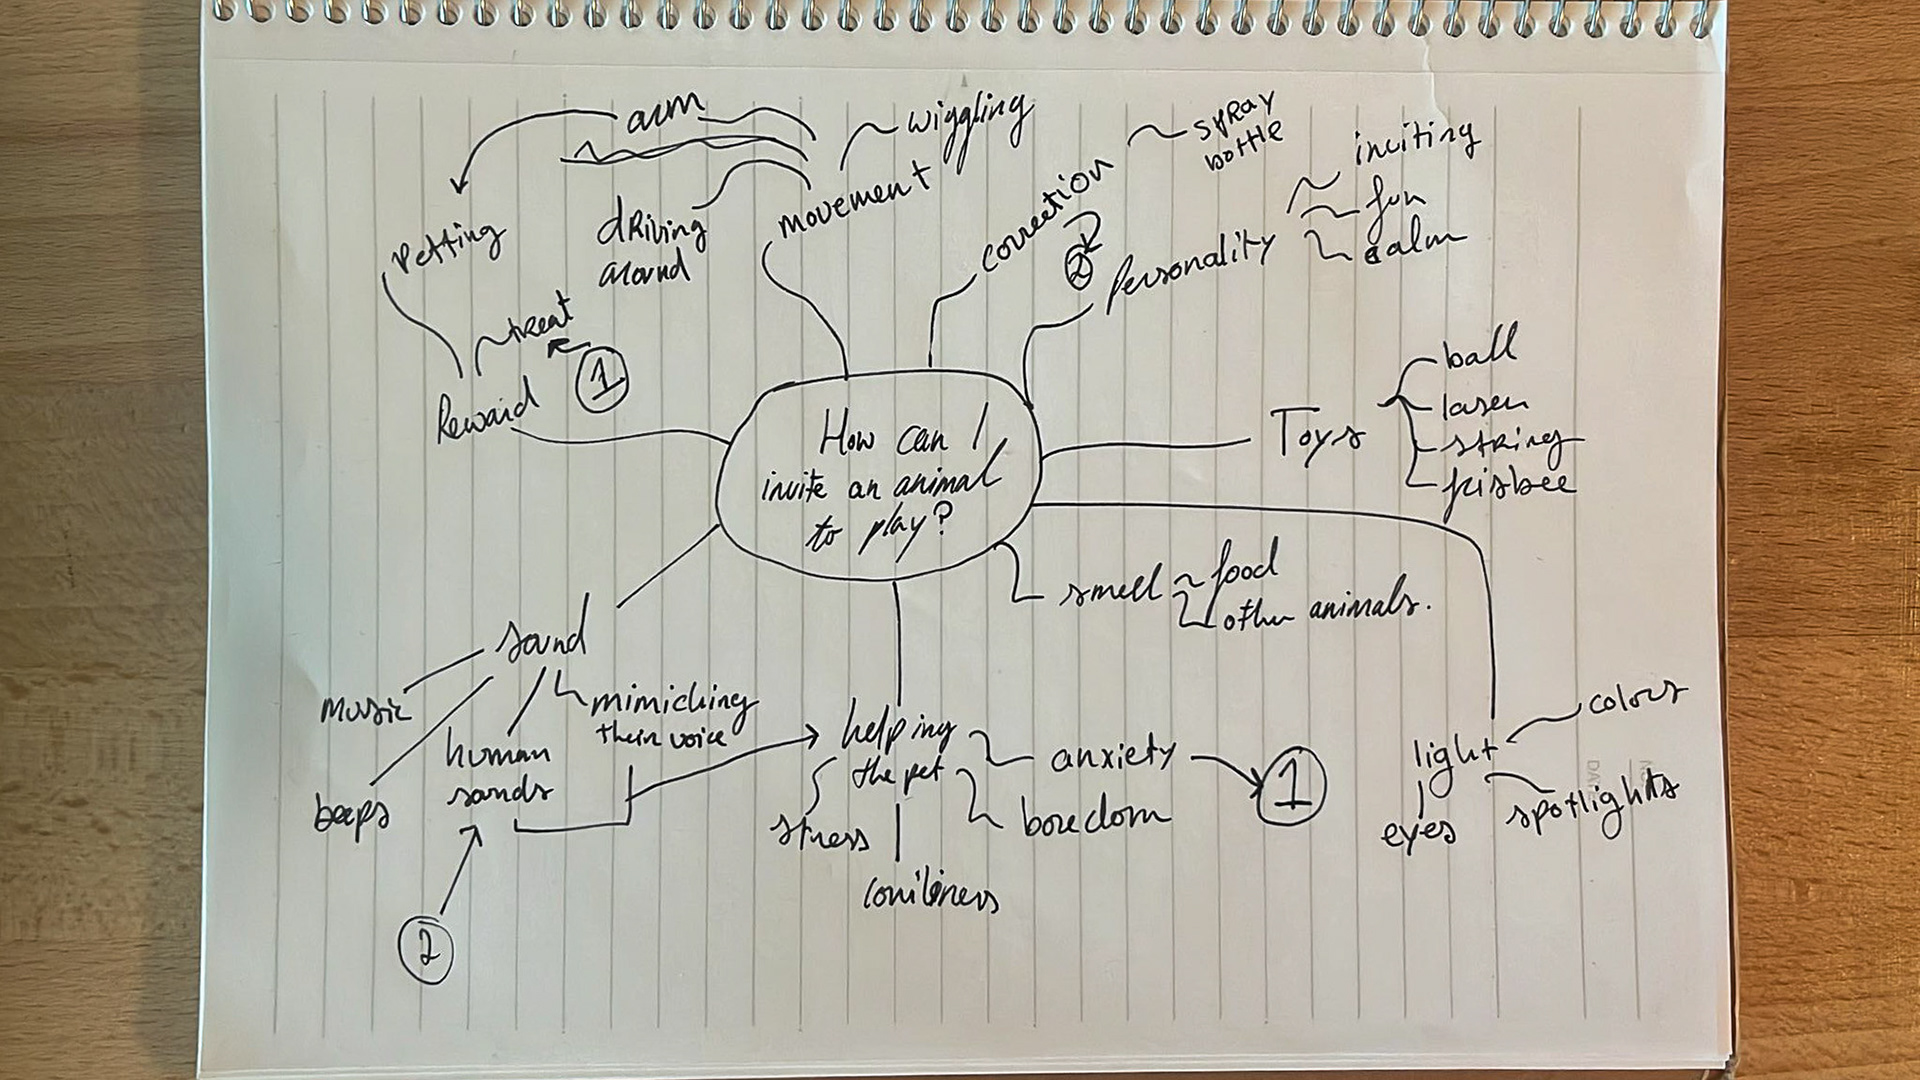 How can I
invite an animal
to play?
movement
arm
wiggling
driving
around
correction
2
spray
bottle
Personality
inviting
fun
calm
Toys
ball
laser
string
frisbee
light
colors
spotlights
eyes
smell
food
other animals.
helping
the pet
anxiety
1
boredom
loniliness
stress
sound
mimicking
their voice
human
sounds
2
beeps
music
Reward
treat
1
Petting